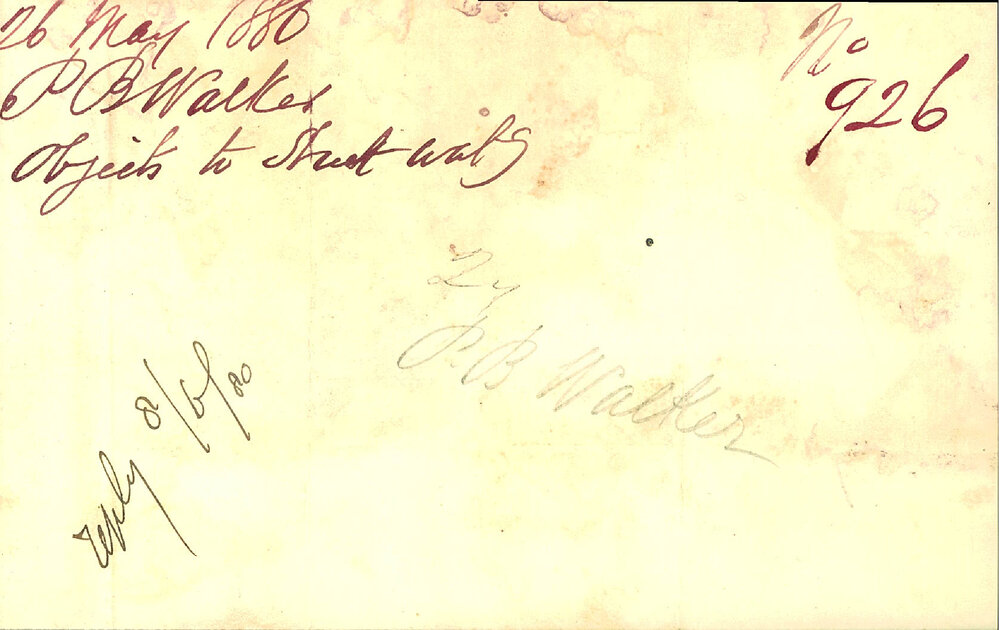 26 May 1880
P B Walker
Objects to Street watg
No
926
P. B Walker
reply 8/6/80